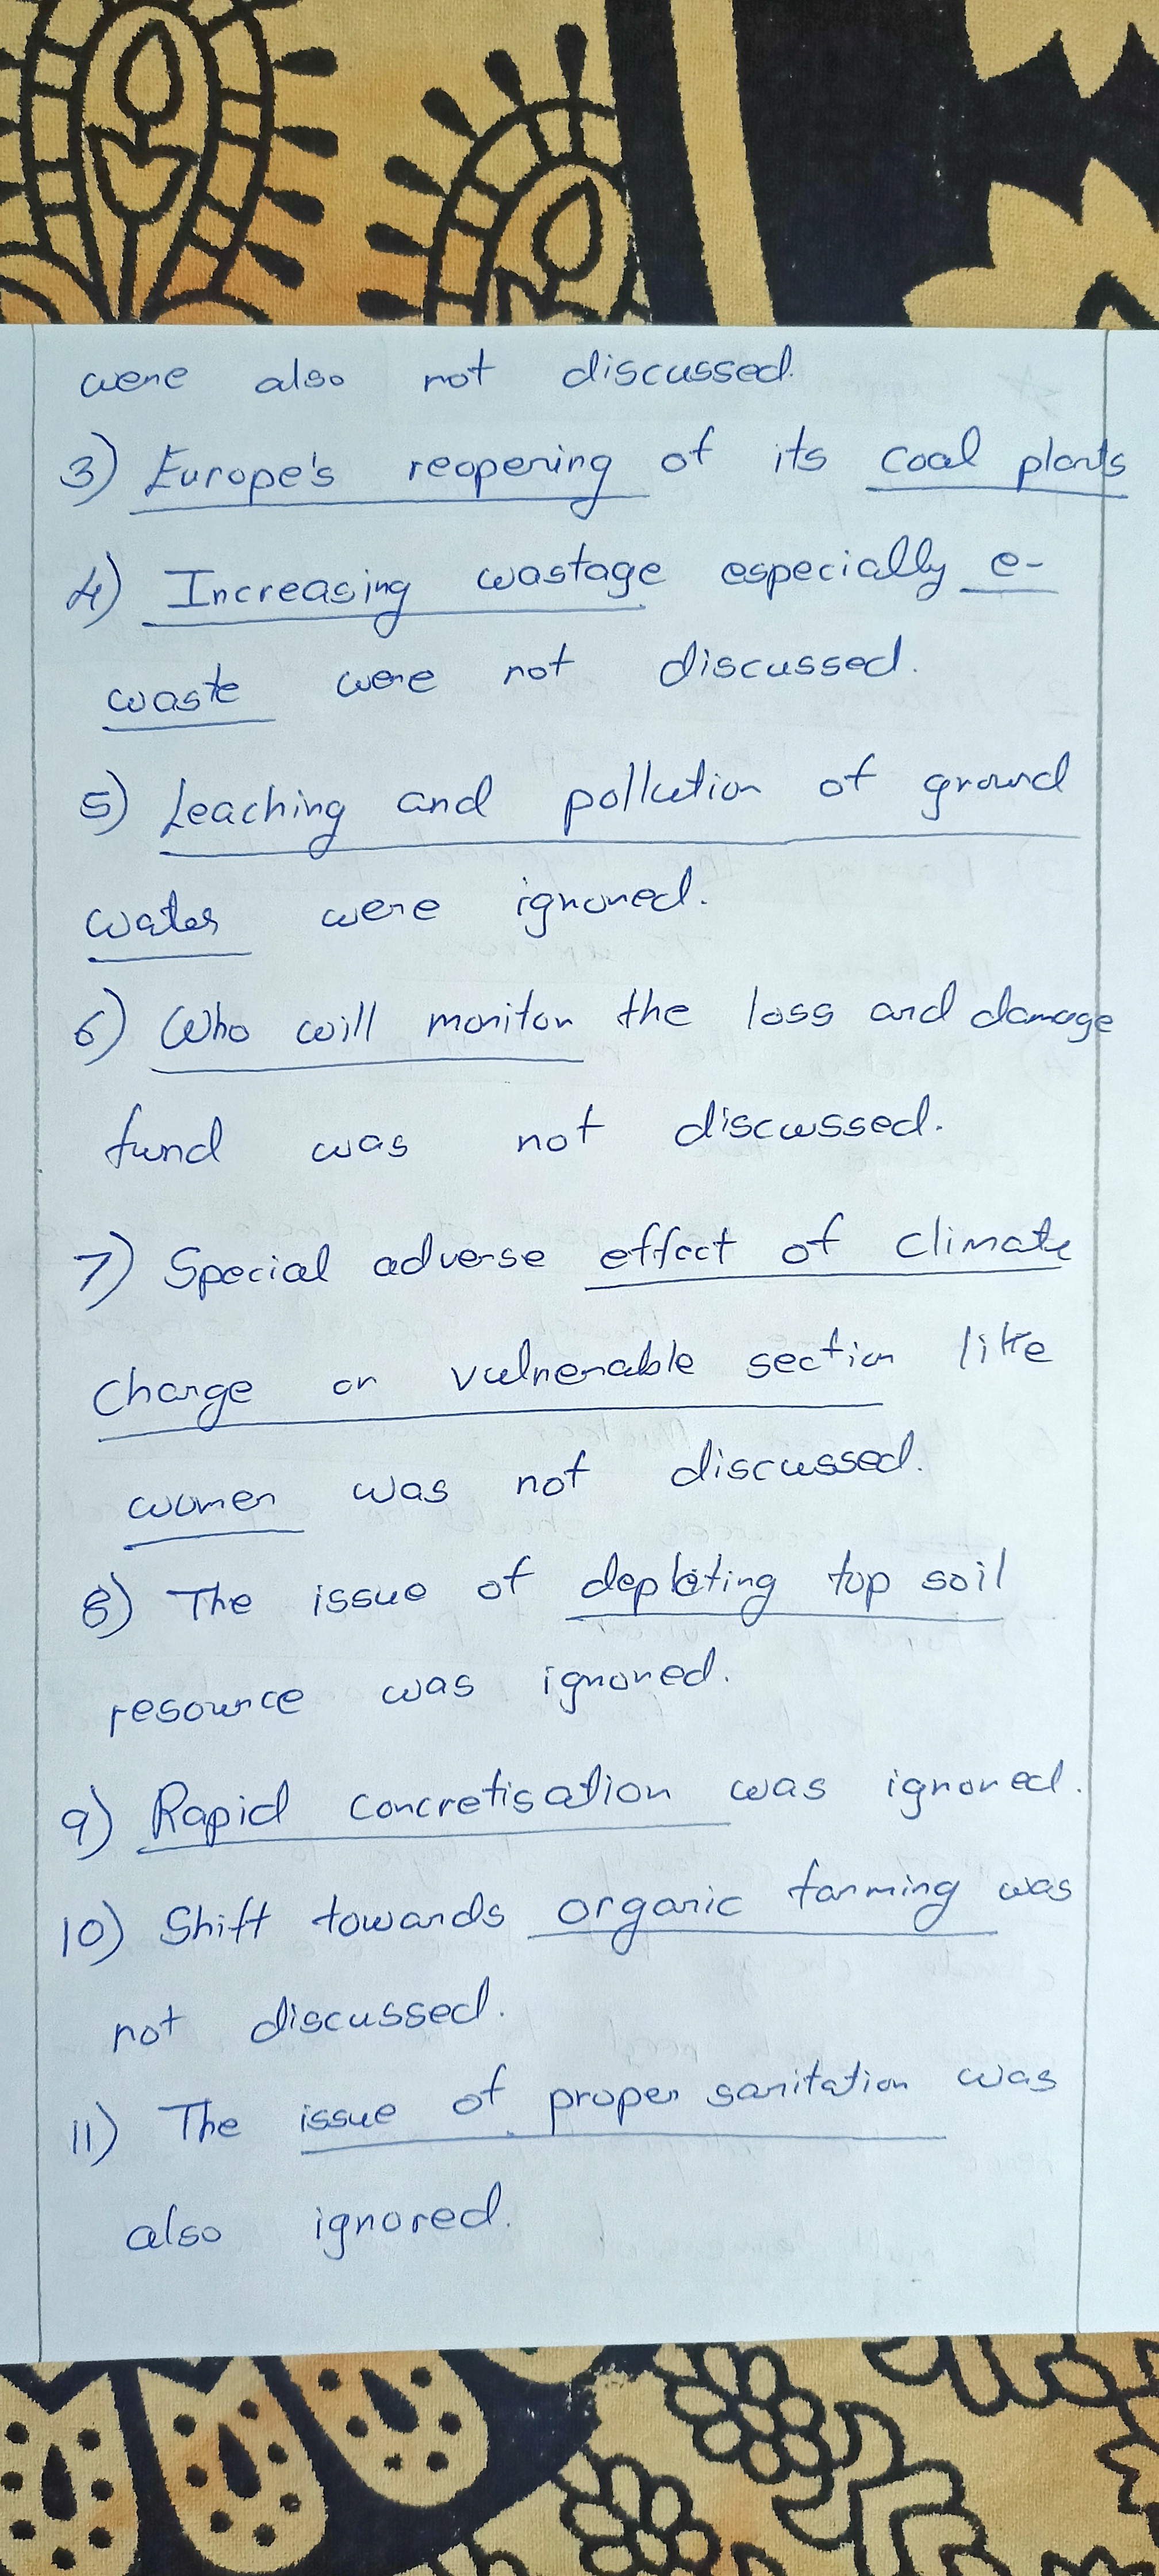 were also not discussed.
3) Europe's reopening of its coal plants
4) Increasing wastage especially e-
waste were not discussed.
5) Leaching and pollution of ground
water were ignored.
6) Who will monitor the loss and damage
fund was not discussed.
7) Special adverse effect of climate
change on vulnerable section like
women was not discussed.
8) The issue of depleting top soil
resource was ignored.
9) Rapid concretisation was ignored.
10) Shift towards organic farming was
not discussed.
11) The issue of proper sanitation was
also ignored.